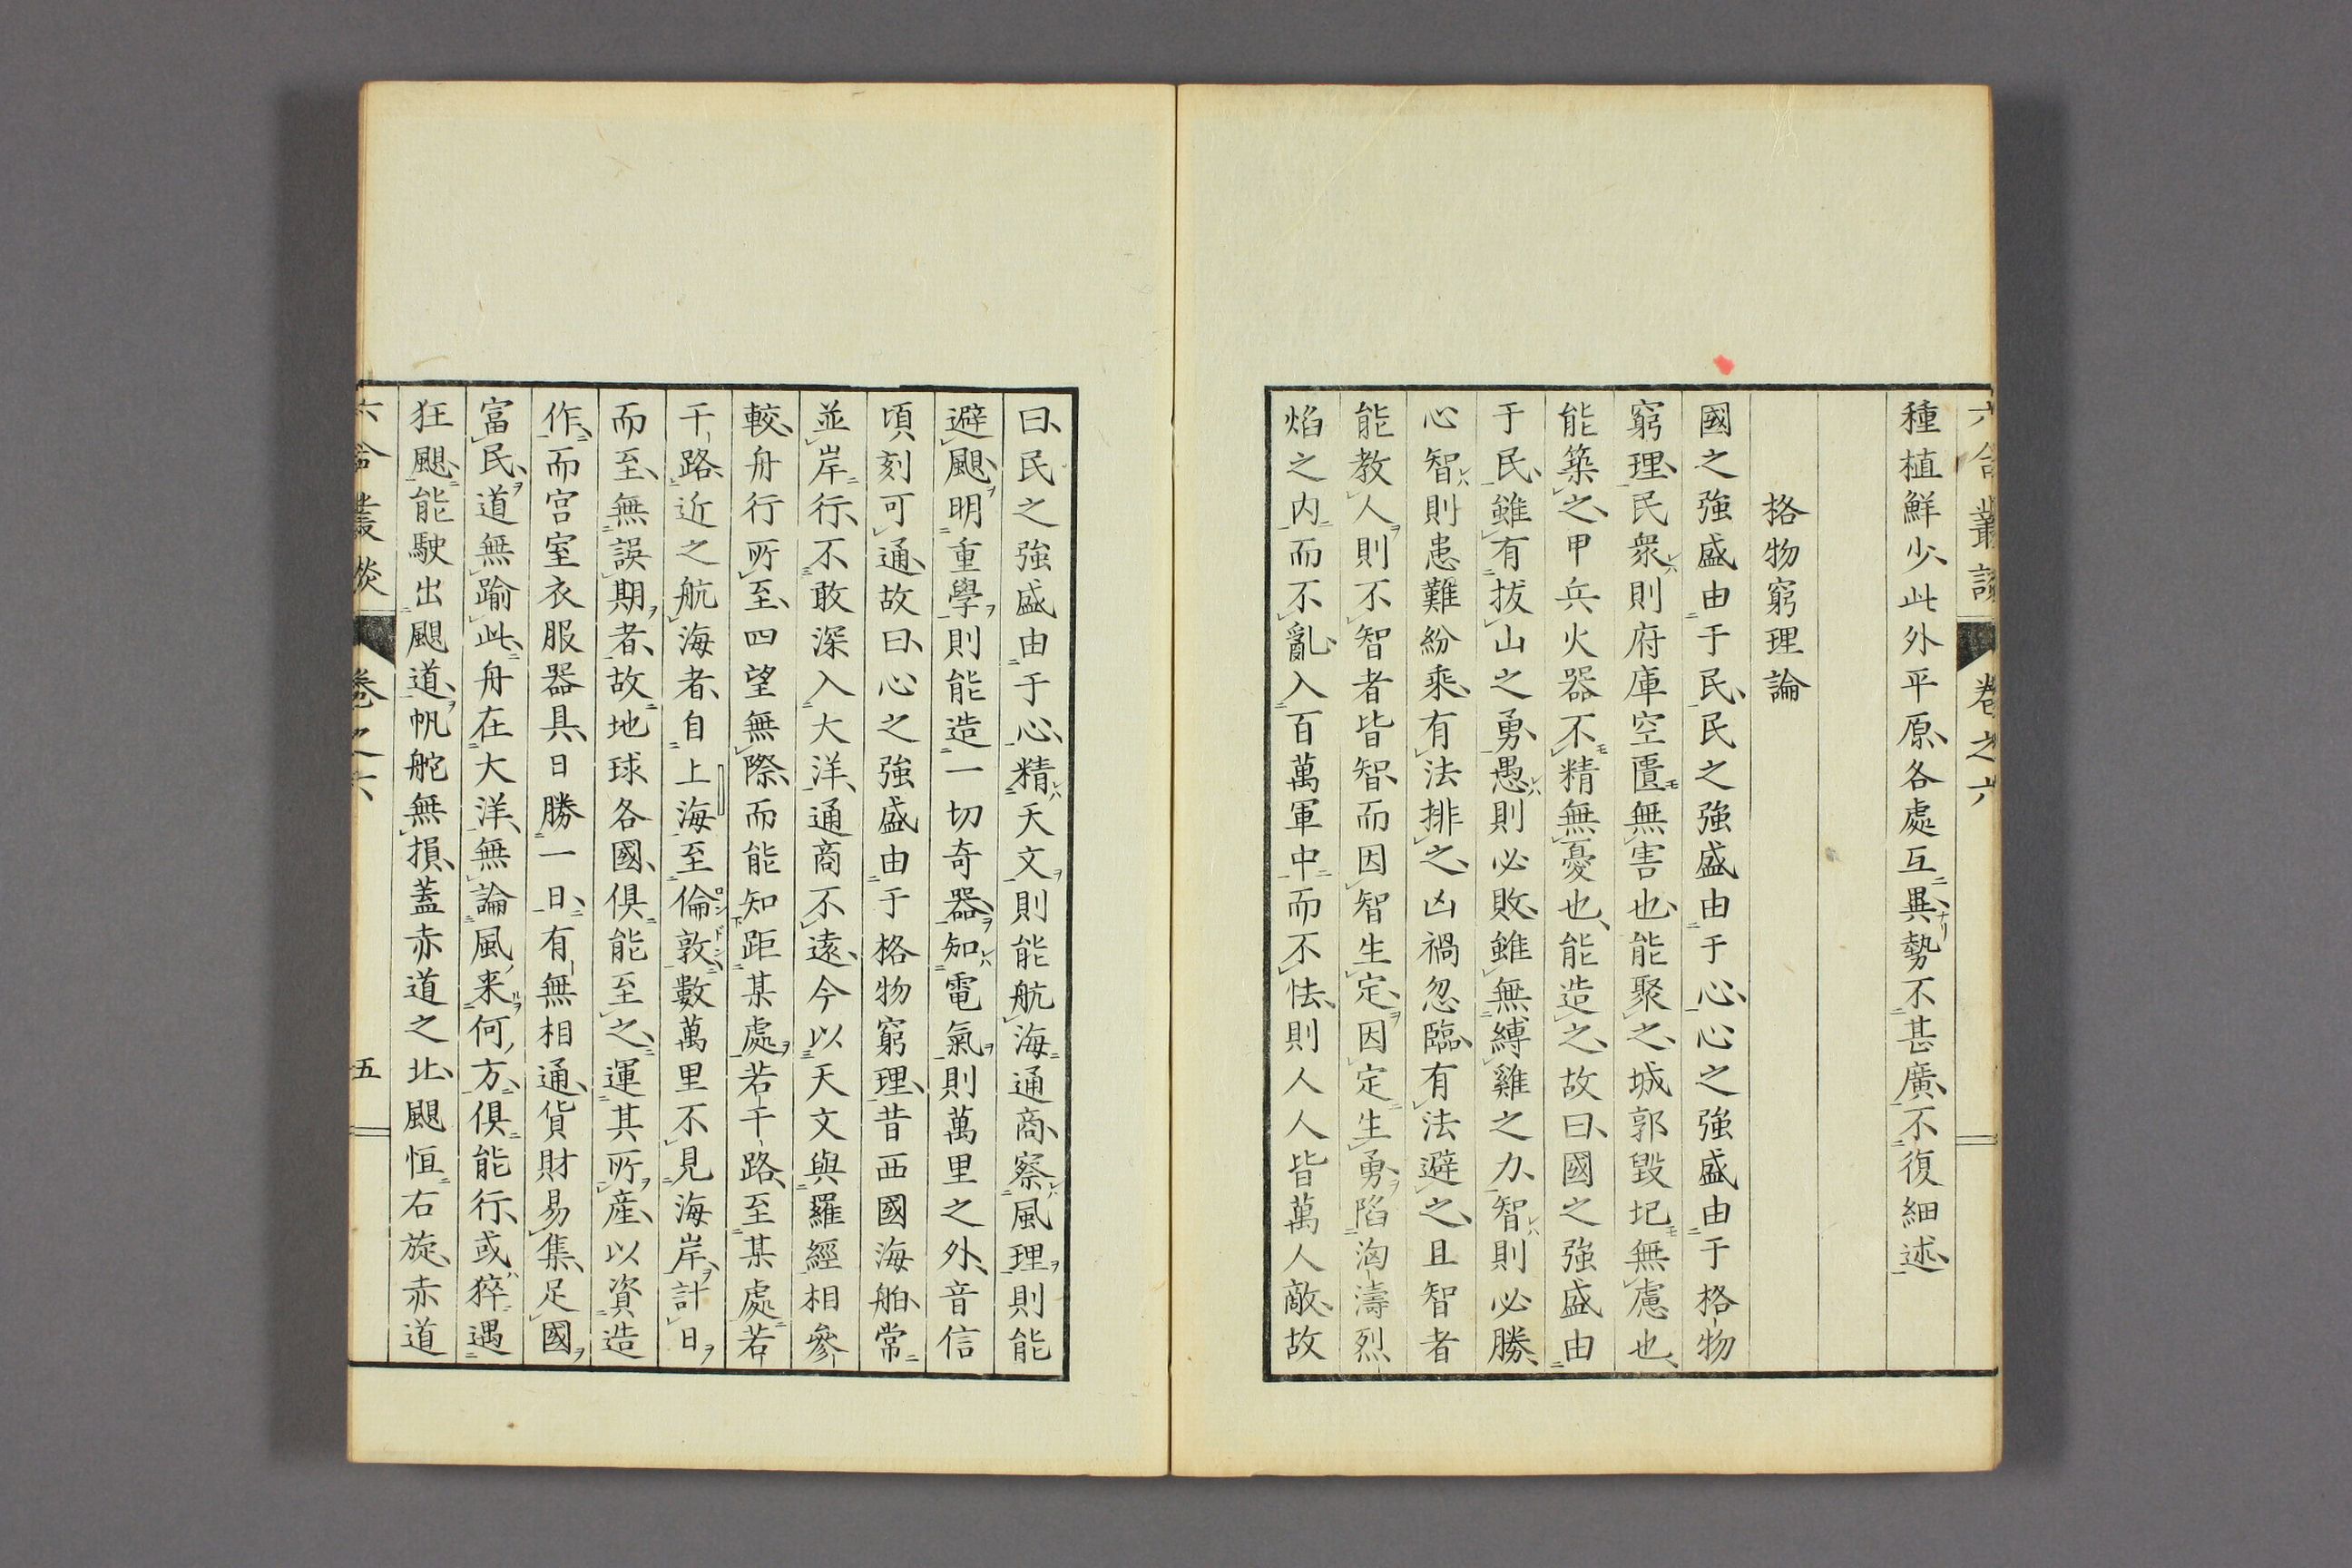 六合叢談 卷之六
種植鮮少此外平原各處互異勢不甚廣不復細述
格物窮理論
國之強盛由于民民之強盛由于心心之強盛由于格物
窮理民衆則府庫空匱無害也能聚之城郭毀圮無慮也
能築之甲兵火器不精無憂也能造之故曰國之強盛由
于民雖有拔山之勇愚則必敗雖無縛雞之力智則必勝
心智則患難紛乘有法排之凶禍忽臨有法避之且智者
能教人則不智者皆智而因智生定因定生勇陷洶濤烈
焰之內而不亂入百萬軍中而不怯則人人皆萬人敵故
曰民之強盛由于心精天文則能航海通商察風理則能
避颶明重學則能造一切奇器知電氣則萬里之外音信
頃刻可通故曰心之強盛由于格物窮理昔西國海舶常
並岸行不敢深入大洋通商不遠今以天文與羅經相參
較舟行所至四望無際而能知距某處若干路至某處若
干路近之航海者自上海至倫敦數萬里不見海岸計日
而至無誤期者故地球各國俱能至之運其所產以資造
作而宮室衣服器具日勝一日有無相通貨財易集足國
富民道無踰此舟在大洋無論風来何方俱能行或猝遇
狂颶能駛出颶道帆舵無損蓋赤道之北颶恒右旋赤道
六合叢談 卷之六 五